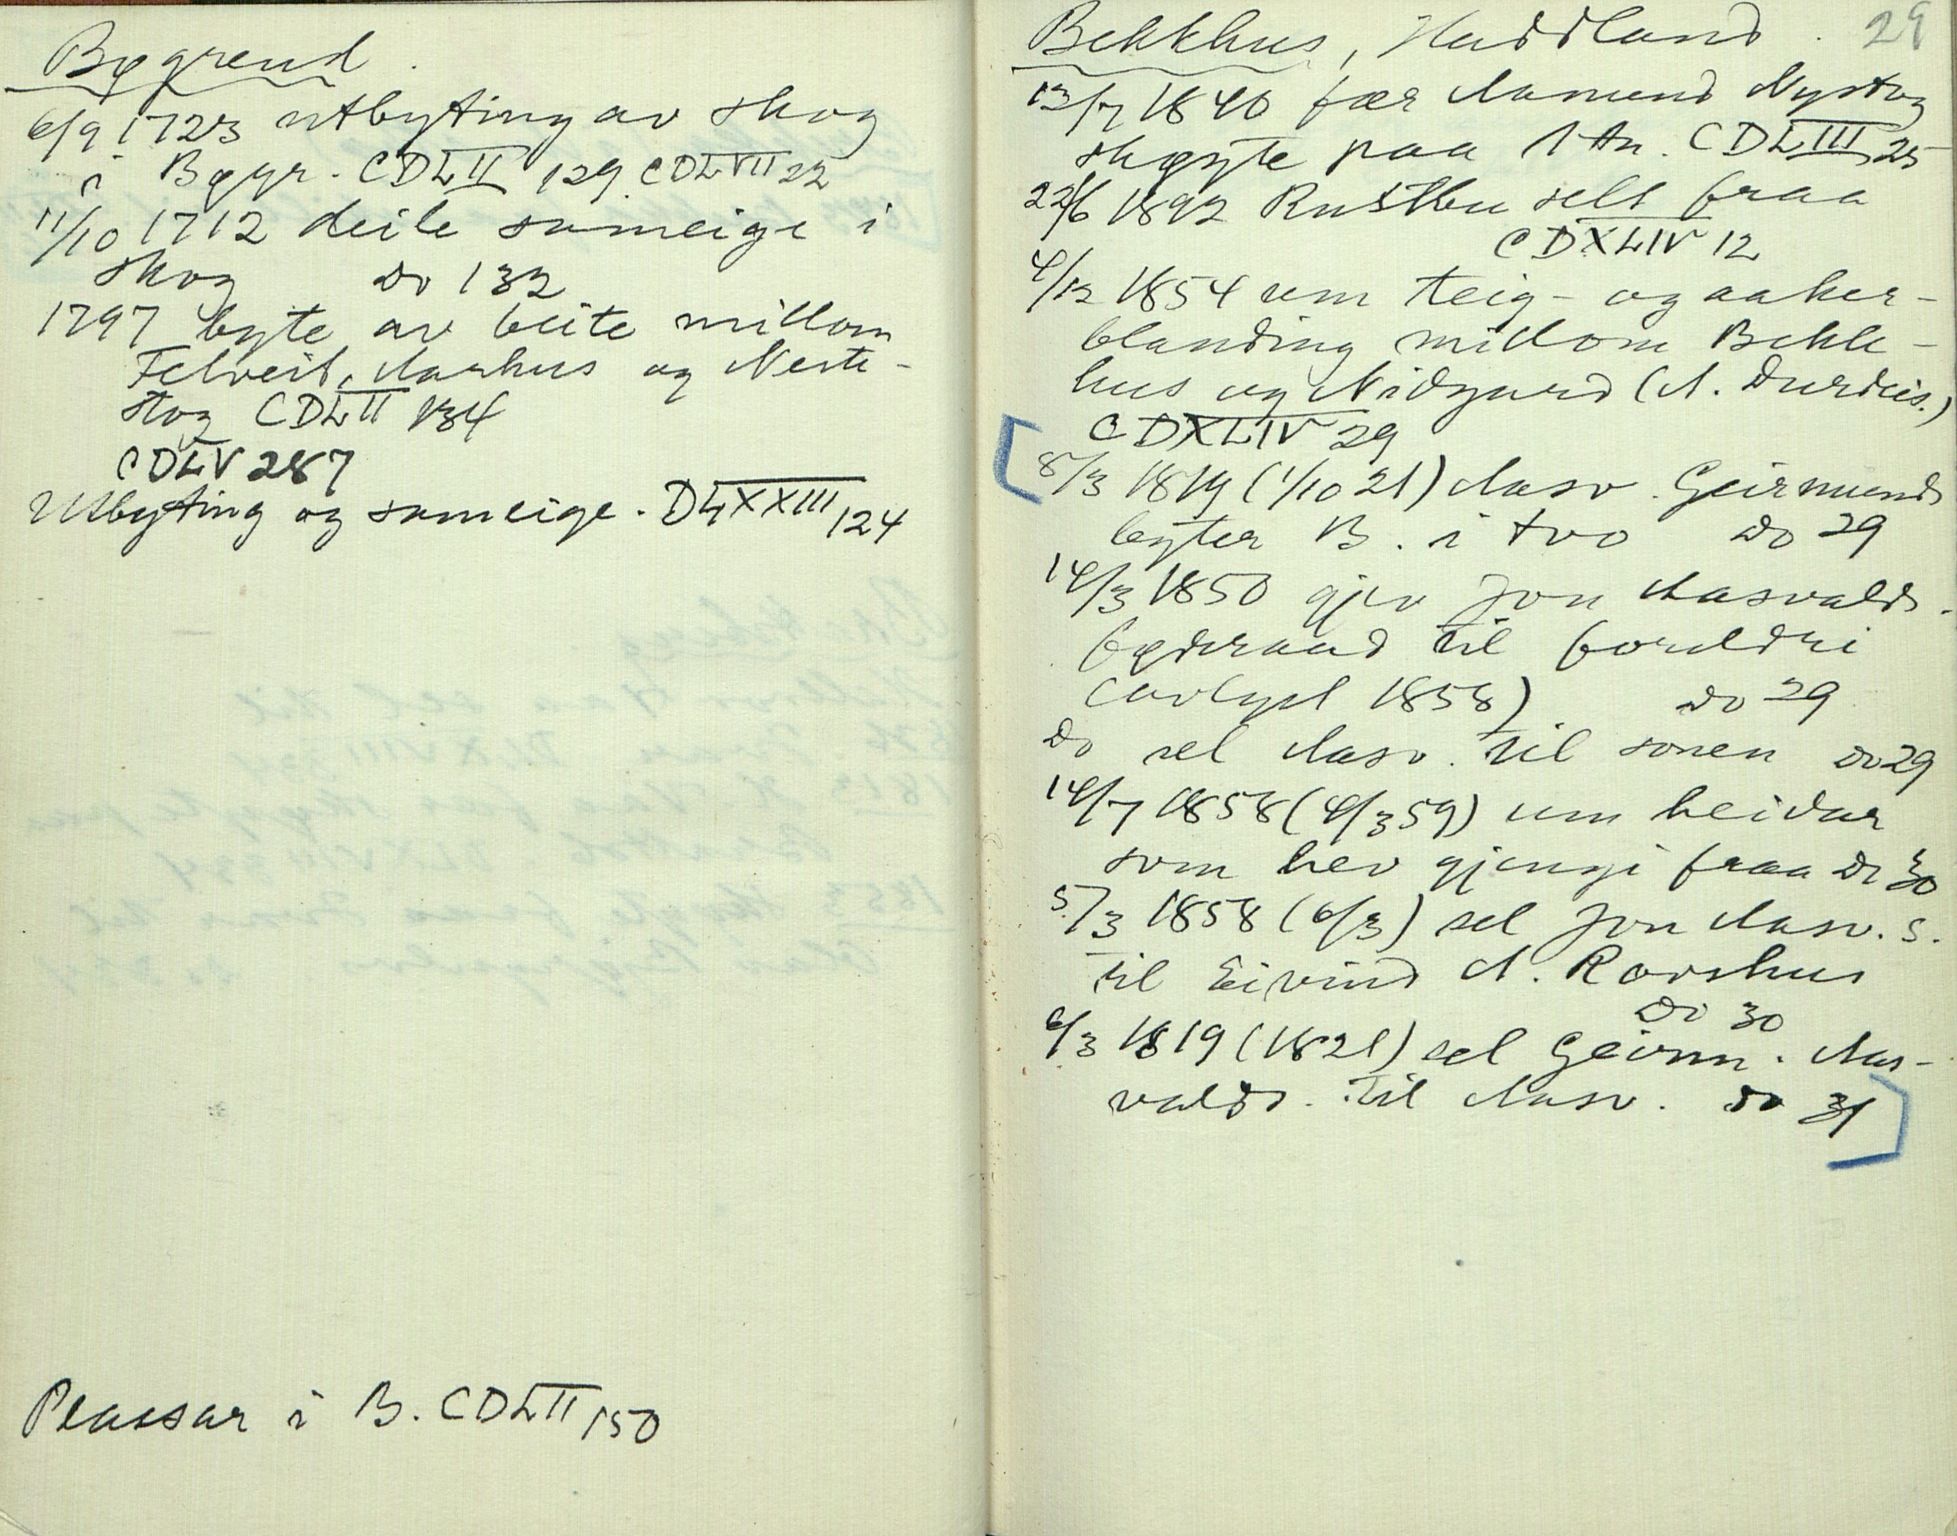 Bøgrend.
6/9 1723 utbyting av skog
i Bøgr. CDLII 129 CDLVII 22
11/10 1712 deile sameige i
skog do 132
1797 byte av beite millom
Felveit, Aarhus og Neste-
stog CDLII 134
CDLV 287
Utbyting og sameige. DLXXIII 124
Plassar i B. CDLII 150
Bekkhus, Haddland. 29
13/7 1840 fær Aamund Nystog
skøyte paa 1 tn. CDLIII 25
22/6 1892 Rustbu selt fraa
CDXLIV 12
4/12 1854 um teig- og aaker-
blanding millom Bekk-
hus og Nidgard (A. Durdeis.)
CDXLIV 29
[8/3 1819 (1/10 21) Aasv. Geirmunds
byter B. i tvo do 29
14/3 1850 gjev Jon Aasvalds.
føderaad til foreldri
(avlyst 1858) do 29
do sel Aasv. til sonen do 29
14/7 1858 (4/3 59) um heidar
som hev gjengi fraa do 30
5/3 1858 (6/3) sel Jon Aasv. s.
til Eivind A. Rovshus
do 30
6/3 1819 (1821) sel Geirm. Aas-
valds. til Aasv. do 31]